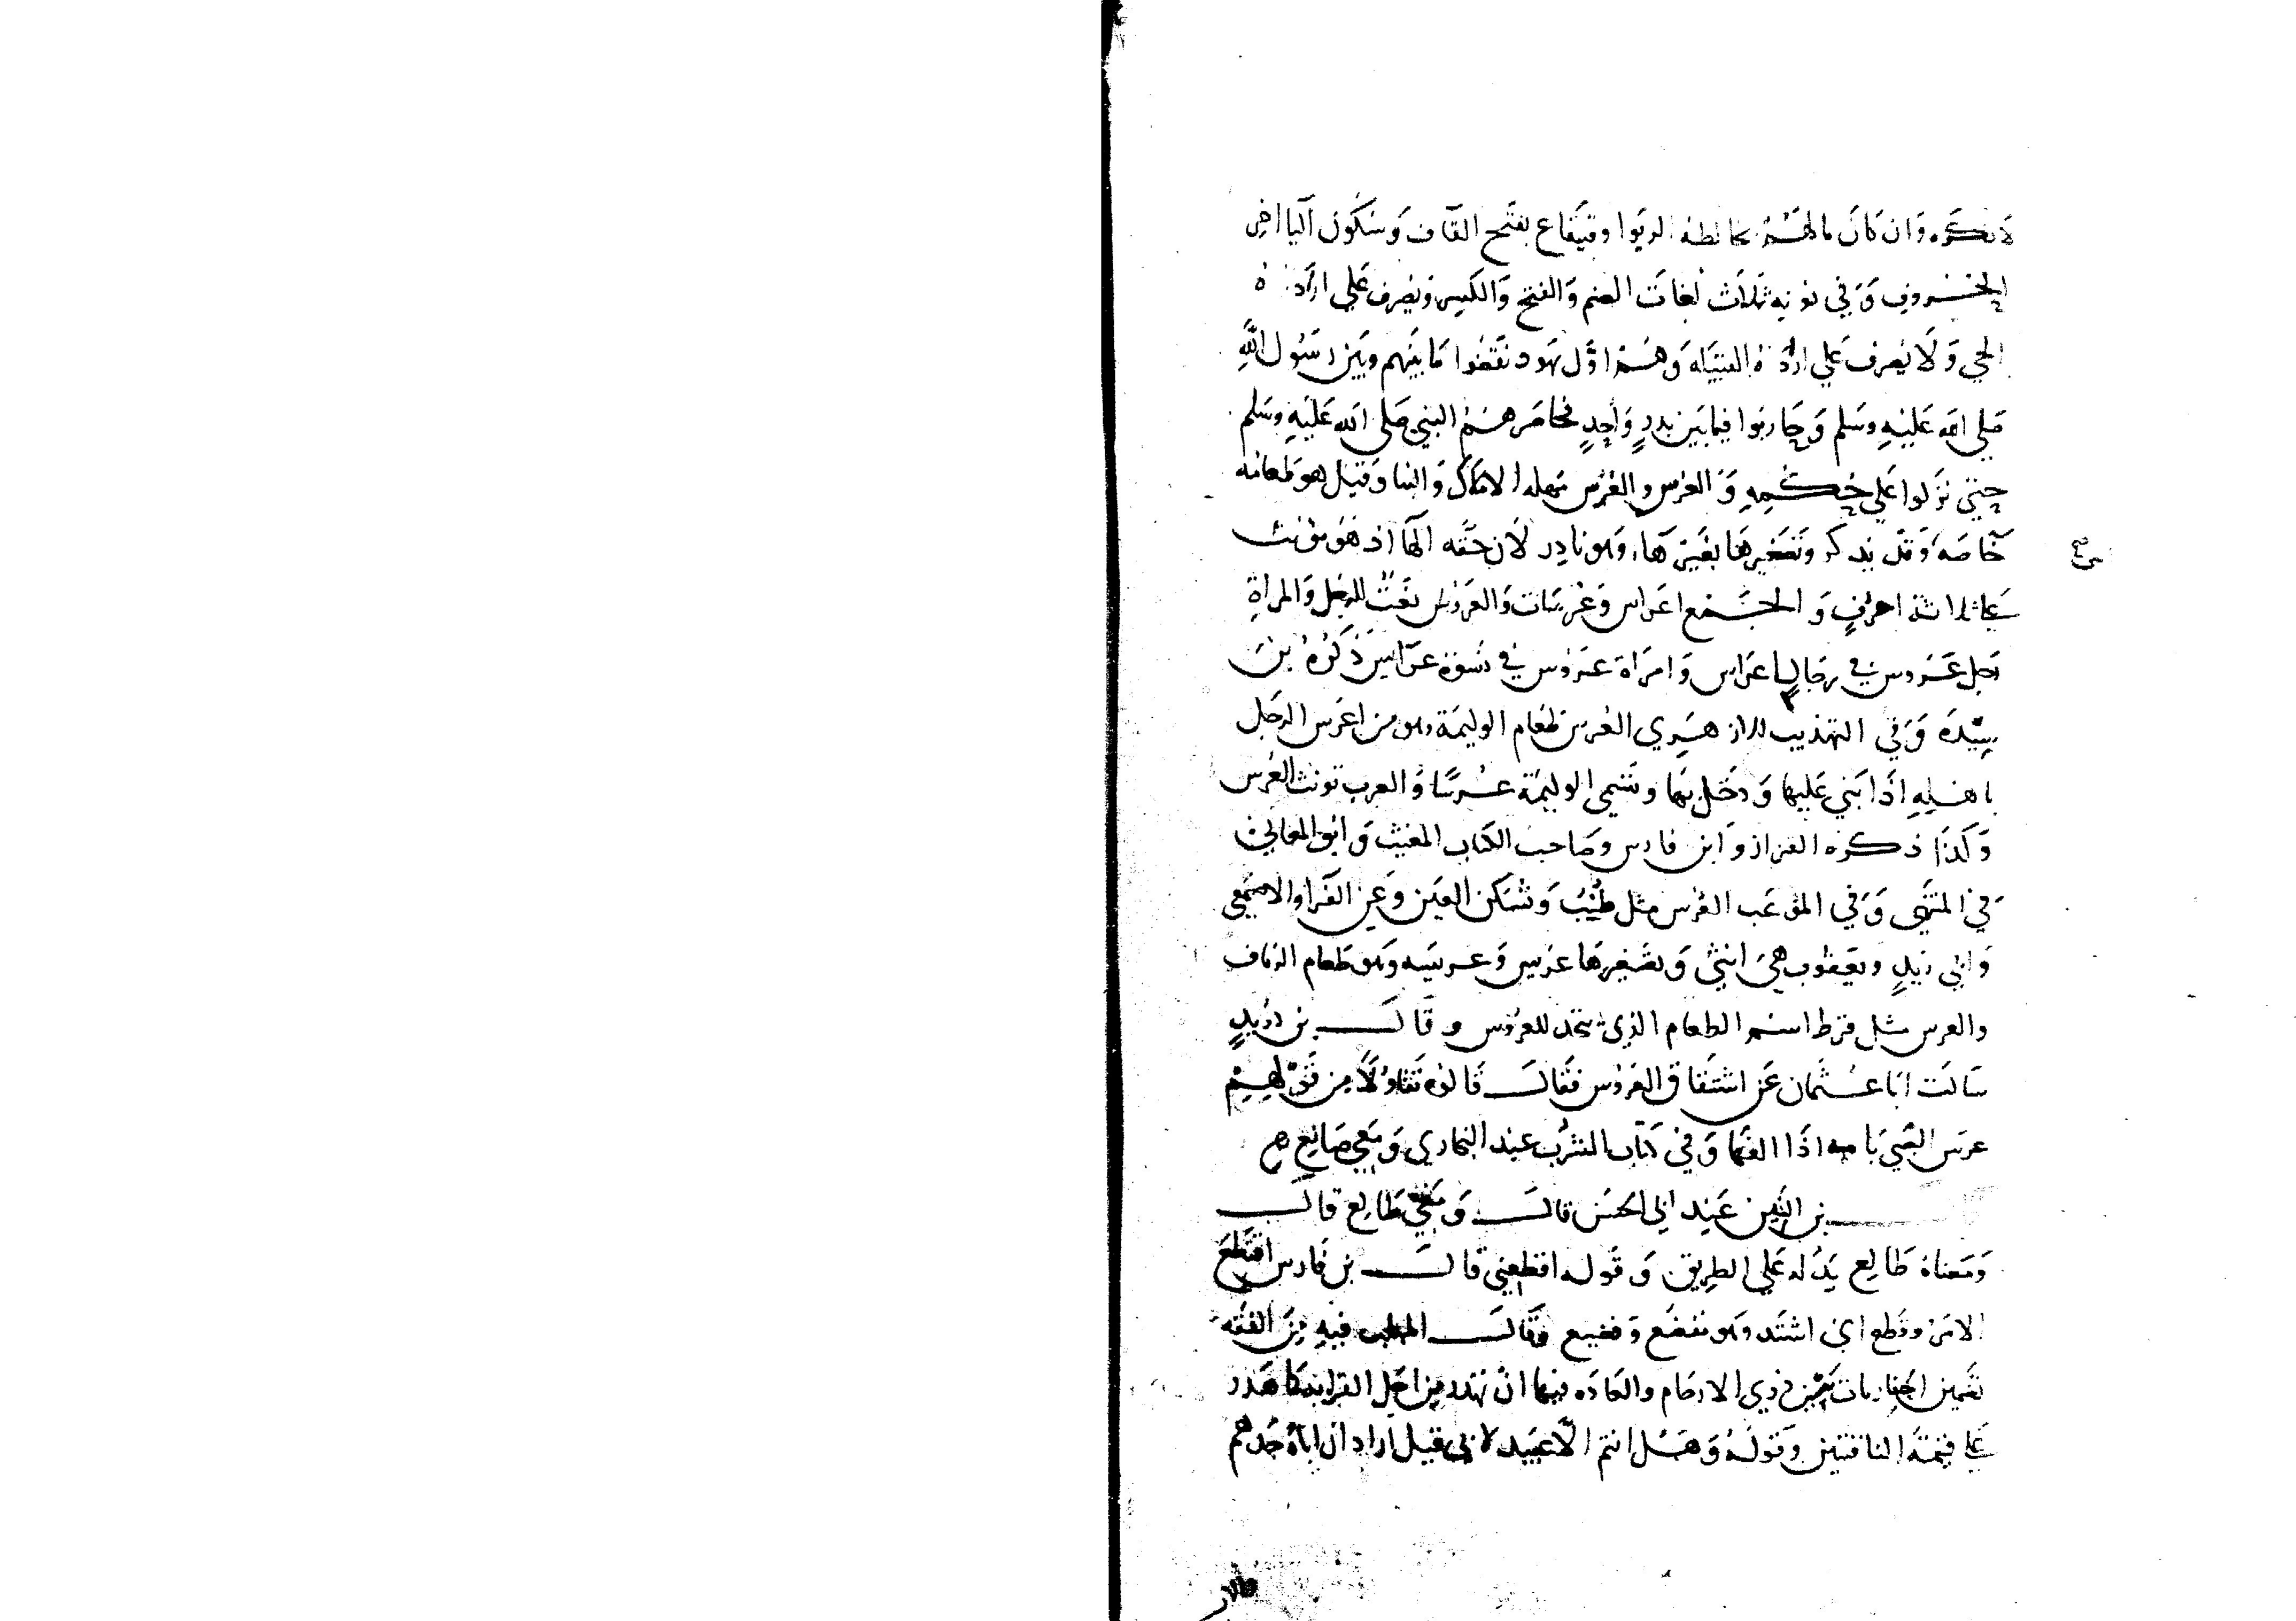 لا نكره وَان كَانَ مالهم مخالطه الربوا وقَينقاع بفتح القاف وَسُكون اليا اخر
الحُروف وَفي نونه ثَلَاث لغات الضم وَالفتح وَالكسر ونصرف عَلى ارادة
الحي وَلَا نصرف عَلى ارادة القبيَلة وَهُم اوَّل يهود نقَضوا مَا بينهم وبَين رسُول الله
صَلى الله عَليْهِ وسَلم وَحَاربوا فيما بَين بَدرٍ وَاحدٍ فحاصَرهُم النبي صَلى الله عَليْهِ وسَلم
حَتي نزلوا عَلى حُكمِه وَالعرس والعُرُس مهله الاملاك وَالبنا وَقيل هو طَعامه
خَاصَه وَقد يذكر وَتصَغيرهَا بغَير هَاء وَهو نادِر لأن حَقه الهَا اذ هوَ مؤنث
عَلى ثلاثة احرفٍ وَالجَمع اعرَاس وَعُرسَات وَالعَرُوس نعَت للرجُل وَالمرأة
رَجل عَرُوس في رجَال اعرَاس وَامرَاة عَرُوس في نسْوة عرَايس ذكَرهُ بن
سِيْدَه وَفي التهذيب للازهَرِي العُرس طَعام الوليمَة وهو من اعرَس الرجَل
باهْلِهِ اذَا بَني عَليها وَدخَل بهَا وتسَمى الوليمَة عُرسًا وَالعرب تونث العُرس
وَكذَا ذكره القزاز وَابن فارس وصَاحب الكتاب المغيث وَابو المعَالي
في المنتهَى وَفي الموعَب العُرس مثل طُنُب وَتُسَكن العَين وَعن الفَرا والاصمَعي
وَابي زيدٍ ويعقوب هيَ انثى وَتصَغيرهَا عُريس وَعريسه وَهو طعام الزفاف
والعرس مثل قرط اسم الطعام الذي يتخذ للعرُوس وقَال بن دريدٍ
سَالت ابَا عُثمان عَن اشتقاق العَرُوس فقَال قَالوه تفَاؤلًا من قَوْلهِم
عرسَ الصَّبي بَامه اذَا الفَها وَفي كتاب الشُرب عند البخاري وَمَعي صَايغ هم
بن التِين عَند ابي الحسَن قال وَمَعي طَالع قال
وَمَعناهُ طَالع يَدُله عَلى الطرِيق وَقَوله افظعني قال بن فَارس افظَع
الامَر وفظع اي اشتد وهو مفظع وَفظيع وقَال المهلب فيهِ مِنَ الفقه
تضَمين الجنايات بَين ذوي الارحَام والعَادَه فيها ان تهدر من اجَل القرابَة كما هَدر
عَلى قيمَة الناقتين وَقولهُ وَهَل انتم الّا عَبيد لابي قيل ارَاد ان ابَاهُ جَدهم